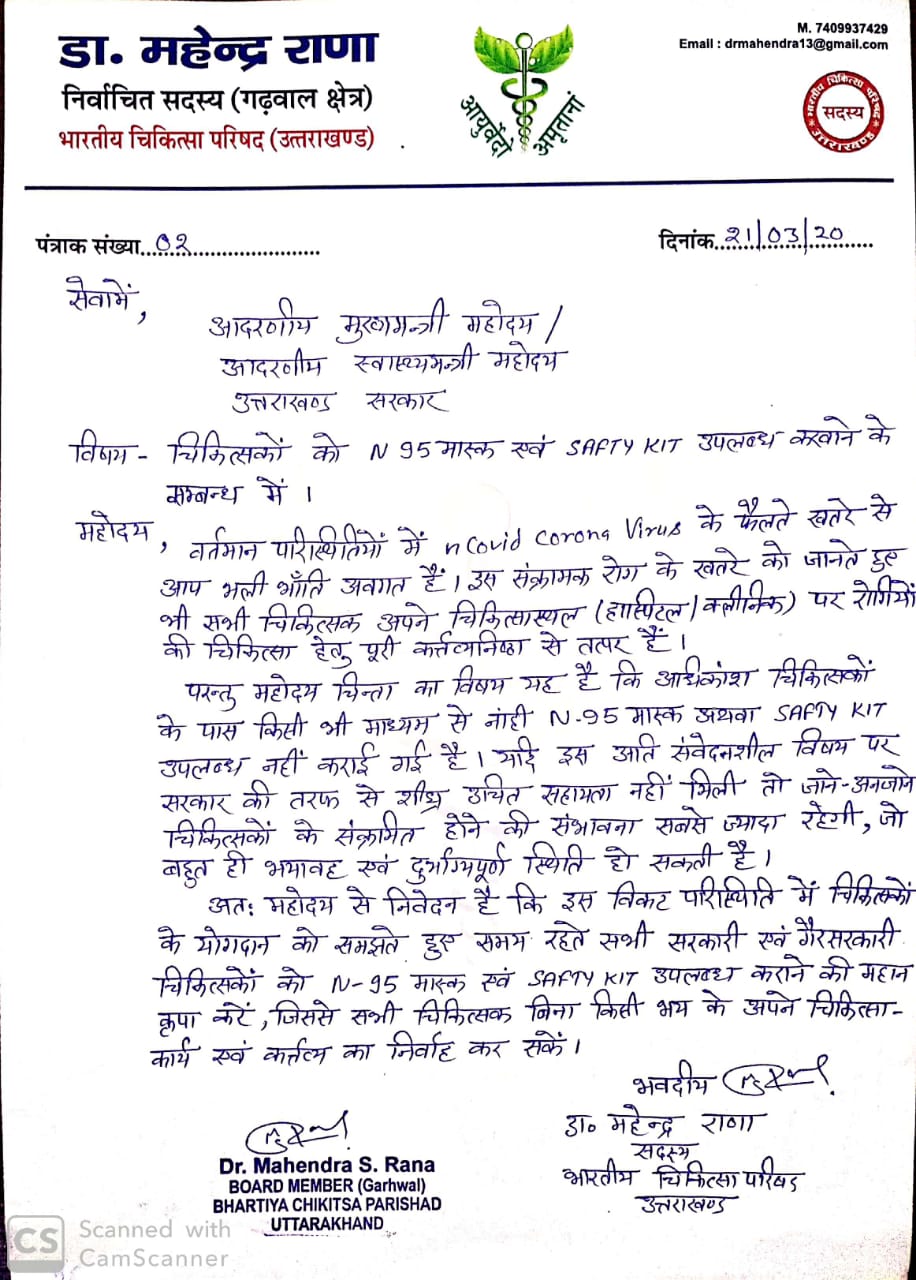 डा. महेन्द्र राणा
निर्वाचित सदस्य (गढ़वाल क्षेत्र)
भारतीय चिकित्सा परिषद (उत्तराखण्ड)
आयुर्वेदो अमृतानां
M. 7409937429
Email : drmahendra13@gmail.com
भारतीय चिकित्सा परिषद
सदस्य
उत्तराखण्ड
पंत्राक संख्या..02
दिनांक..21/03/20
सेवामें,
आदरणीय मुख्यमन्त्री महोदय /
आदरणीय स्वास्थ्यमन्त्री महोदय
उत्तराखण्ड सरकार
विषय - चिकित्सकों को N 95 मास्क एवं SAFTY KIT उपलब्ध करवाने के
सम्बन्ध में ।
महोदय,
वर्तमान परिस्थितियों में nCovid Corona Virus के फैलते खतरे से
आप भली भाँति अवगत हैं। इस संक्रामक रोग के खतरे को जानते हुए
भी सभी चिकित्सक अपने चिकित्सास्थल (हास्पिटल/क्लीनिक) पर रोगियों
की चिकित्सा हेतु पूरी कर्त्तव्यनिष्ठा से तत्पर हैं ।
परन्तु महोदय चिन्ता का विषय यह है कि अधिकांश चिकित्सकों
के पास किसी भी माध्यम से नांही N-95 मास्क अथवा SAFTY KIT
उपलब्ध नहीं कराई गई है । यदि इस अति संवेदनशील विषय पर
सरकार की तरफ से शीघ्र उचित सहायता नहीं मिली तो जाने-अनजाने
चिकित्सकों के संक्रमित होने की संभावना सबसे ज्यादा रहेगी, जो
बहुत ही भयावह एवं दुर्भाग्यपूर्ण स्थिति हो सकती है ।
अतः महोदय से निवेदन है कि इस विकट परिस्थिति में चिकित्सकों
के योगदान को समझते हुए समय रहते सभी सरकारी एवं गैरसरकारी
चिकित्सकों को N-95 मास्क एवं SAFTY KIT उपलब्ध कराने की महान
कृपा करें, जिससे सभी चिकित्सक बिना किसी भय के अपने चिकित्सा-
कार्य एवं कर्त्तव्य का निर्वाह कर सकें ।
भवदीय
डा० महेन्द्र राणा
सदस्य
भारतीय चिकित्सा परिषद
उत्तराखण्ड
Dr. Mahendra S. Rana
BOARD MEMBER (Garhwal)
BHARTIYA CHIKITSA PARISHAD
UTTARAKHAND
CS Scanned with
CamScanner